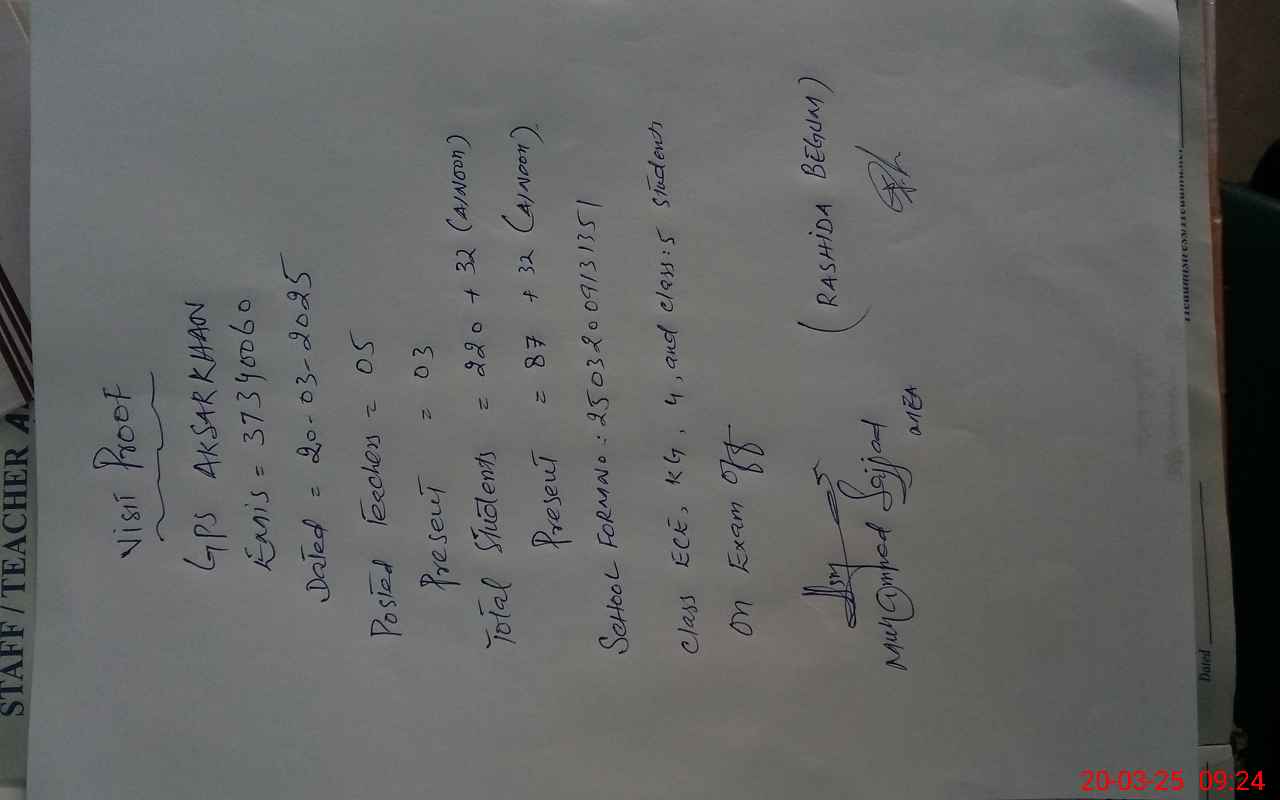 Visit Proof
GPS AKSAR KHAN
Emis = 37340060
Dated = 20-03-2025
Posted Teachers = 05
Present = 03
Total Students = 220 + 32 (A/Noon)
Present = 87 + 32 (A/Noon)
SCHOOL FORM NO: 25032009131351
Class ECE, KG, 4, and class: 5 students
on Exam off
(RASHIDA BEGUM)
Muh@mmed Sajjad
STAFF / TEACHER A
Dated
20-03-25 09:24